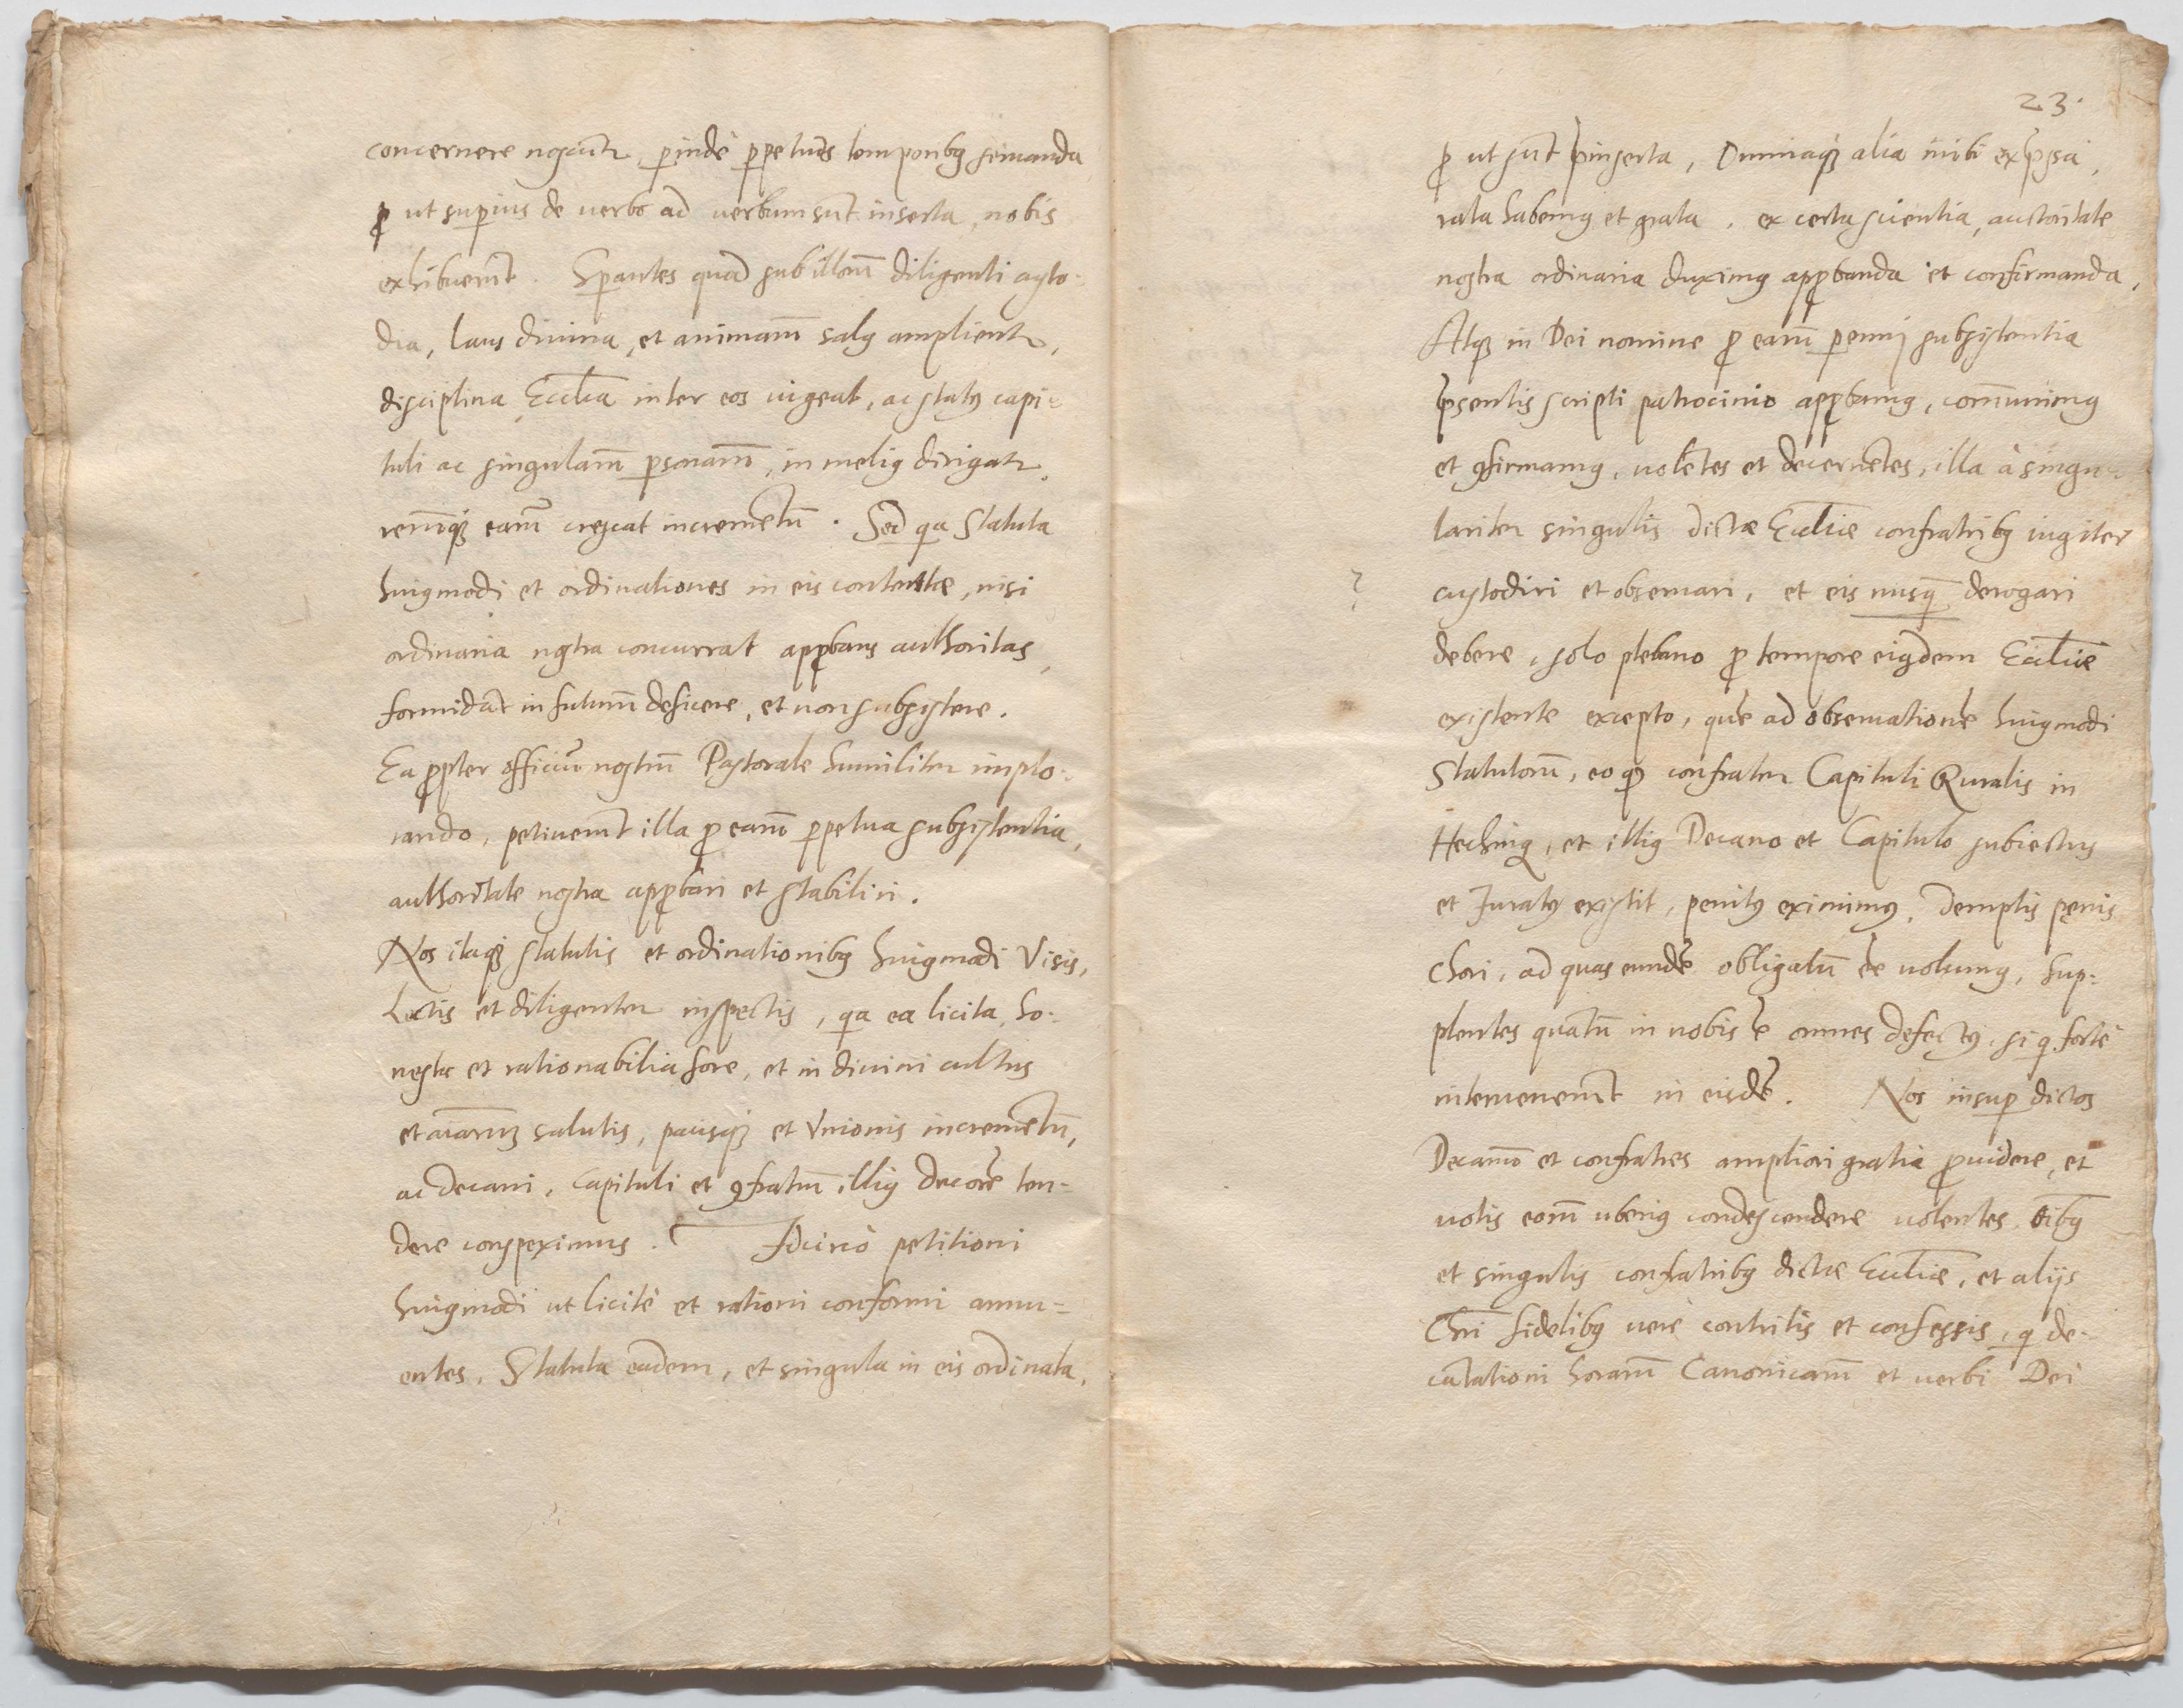 concernere noscũtr, ꝑinde ꝑpetuis temporibꝫ seruanda
ꝓut suꝑius de verbo ad verbum sũt inserta, nobis
exhibuerũt. Sperantes quod sub illorũ diligenti custo-
dia, laus diuina, et animarũ salꝯ amplientr,
disciplina Eccl̃ia inter eos uigeat, ac statꝯ capi
tuli ac singularũ ꝑsonarũ, in meliꝯ dirigatr,
rerũqꝫ earũ crescat incremẽtũ. Sed qa Statuta
huiꝯmodi et ordinationes in eis contentae, nisi
ordinaria nostra concurrat apꝓbans authoritas,
formidãt in futurũ deficere, et non subsistere.
Ea ꝓpter officiũ nostrũ Pastorale humiliter implo-
rando, petiuerũt illa ꝓ earũ ꝑpetua subsistentia,
authoritate nostra apꝓbari et stabiliri.
Nos itaqꝫ statutis et ordinationibꝫ huiꝯmodi Visis,
Lectis et diligenter inspectis, qa ea licita, ho-
nesta et rationabilia fore, et in diuini cultus
et aĩarum salutis, pacisqꝫ et Vnionis incremẽtũ,
ac decani, capituli et ꝯfratrũ illiꝯ decorẽ ten-
dere conspeximus. Idcircò petitioni
huiꝯmodi ut licitè et rationi conformi annu-
entes, Statuta eadem, et singula in eis ordinata,
23.
ꝓut sũt p̃inserta, Omniaqꝫ alia inibi exp̃ssa,
rata habemꝯ et grata, ex certa scientia, auctoritate
nostra ordinaria duximꝯ apꝓbanda et confirmanda,
Atqꝫ in Dei nomine ꝓ earũ ꝑenni subsistentia
p̃sentis scripti patrocinio apꝓbamꝯ, com̃unimꝯ
et ꝯfirmamꝯ, uolẽtes et decernẽtes, illa à singu-
lariter singulis dictæ Eccl̃iæ confratribꝫ iugiter
? custodiri et obseruari, et eis nusq̃ derogari
debere, solo plebano ꝓ tempore eiꝯdem Eccl̃iæ
existente excepto, quẽ ad obseruationẽ huiꝯmodi
Statutorũ, eo qꝫ confrater Capituli Ruralis in
Heching, et illiꝯ Decano et Capitulo subiectus
et Juratꝯ existit, penitꝯ eximimꝯ, demptis pęnis
chori, ad quas eundẽ obligatũ ẽe uolumꝯ, Sup-
plentes quãtũ in nobis ẽ omnes defectꝯ, si q̃ fortè
interuenerũt in eisdẽ. Nos insuꝑ dictos
Decanũ et confratres ampliori gratia ꝓuidere, et
uotis eorũ uberiꝯ condescendere uolentes, oĩbꝫ
et singulis confratribꝫ dictæ Eccl̃iæ, et alijs
Chr̃i fidelibꝫ uerè contritis et confessis, q̃ de-
cãtationi horarũ Canonicarũ et uerbi Dei